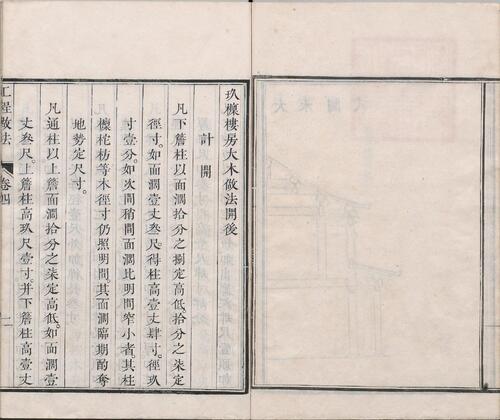 玖檁樓房大木做法開後
計開
凡下簷柱以面濶拾分之捌定高低拾分之柒定
徑寸。如面濶壹丈叁尺。得柱高壹丈肆寸。徑玖
寸壹分。如次間稍間面濶比明間窄小者。其柱
檁柁枋等木徑寸仍照明間。其面濶臨期酌奪
地勢定尺寸。
凡通柱以上簷面濶拾分之捌定高低。如面濶壹
丈叁尺。上簷柱高玖尺壹寸。并下簷柱高壹丈
工程做法
卷四
一